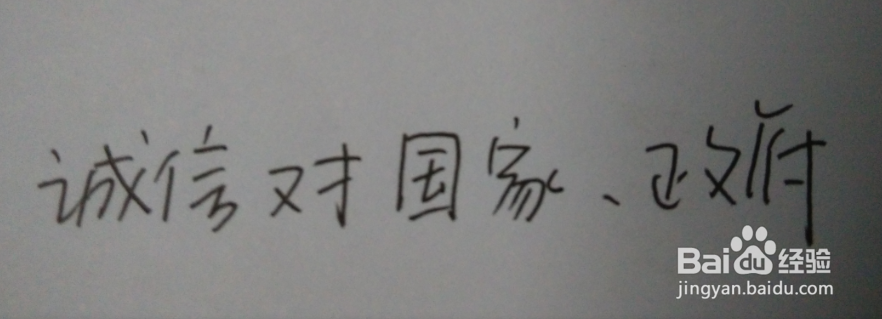 诚信对国家、政府
Baidu经验
jingyan.baidu.com